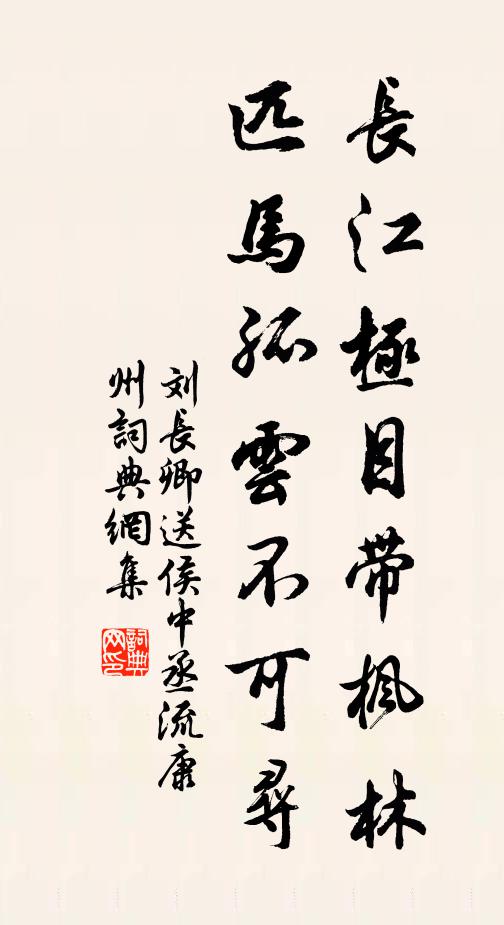 長江極目帶楓林
匹馬孤雲不可尋
刘長卿送侯中丞流康
州詞典網集
詞典网印